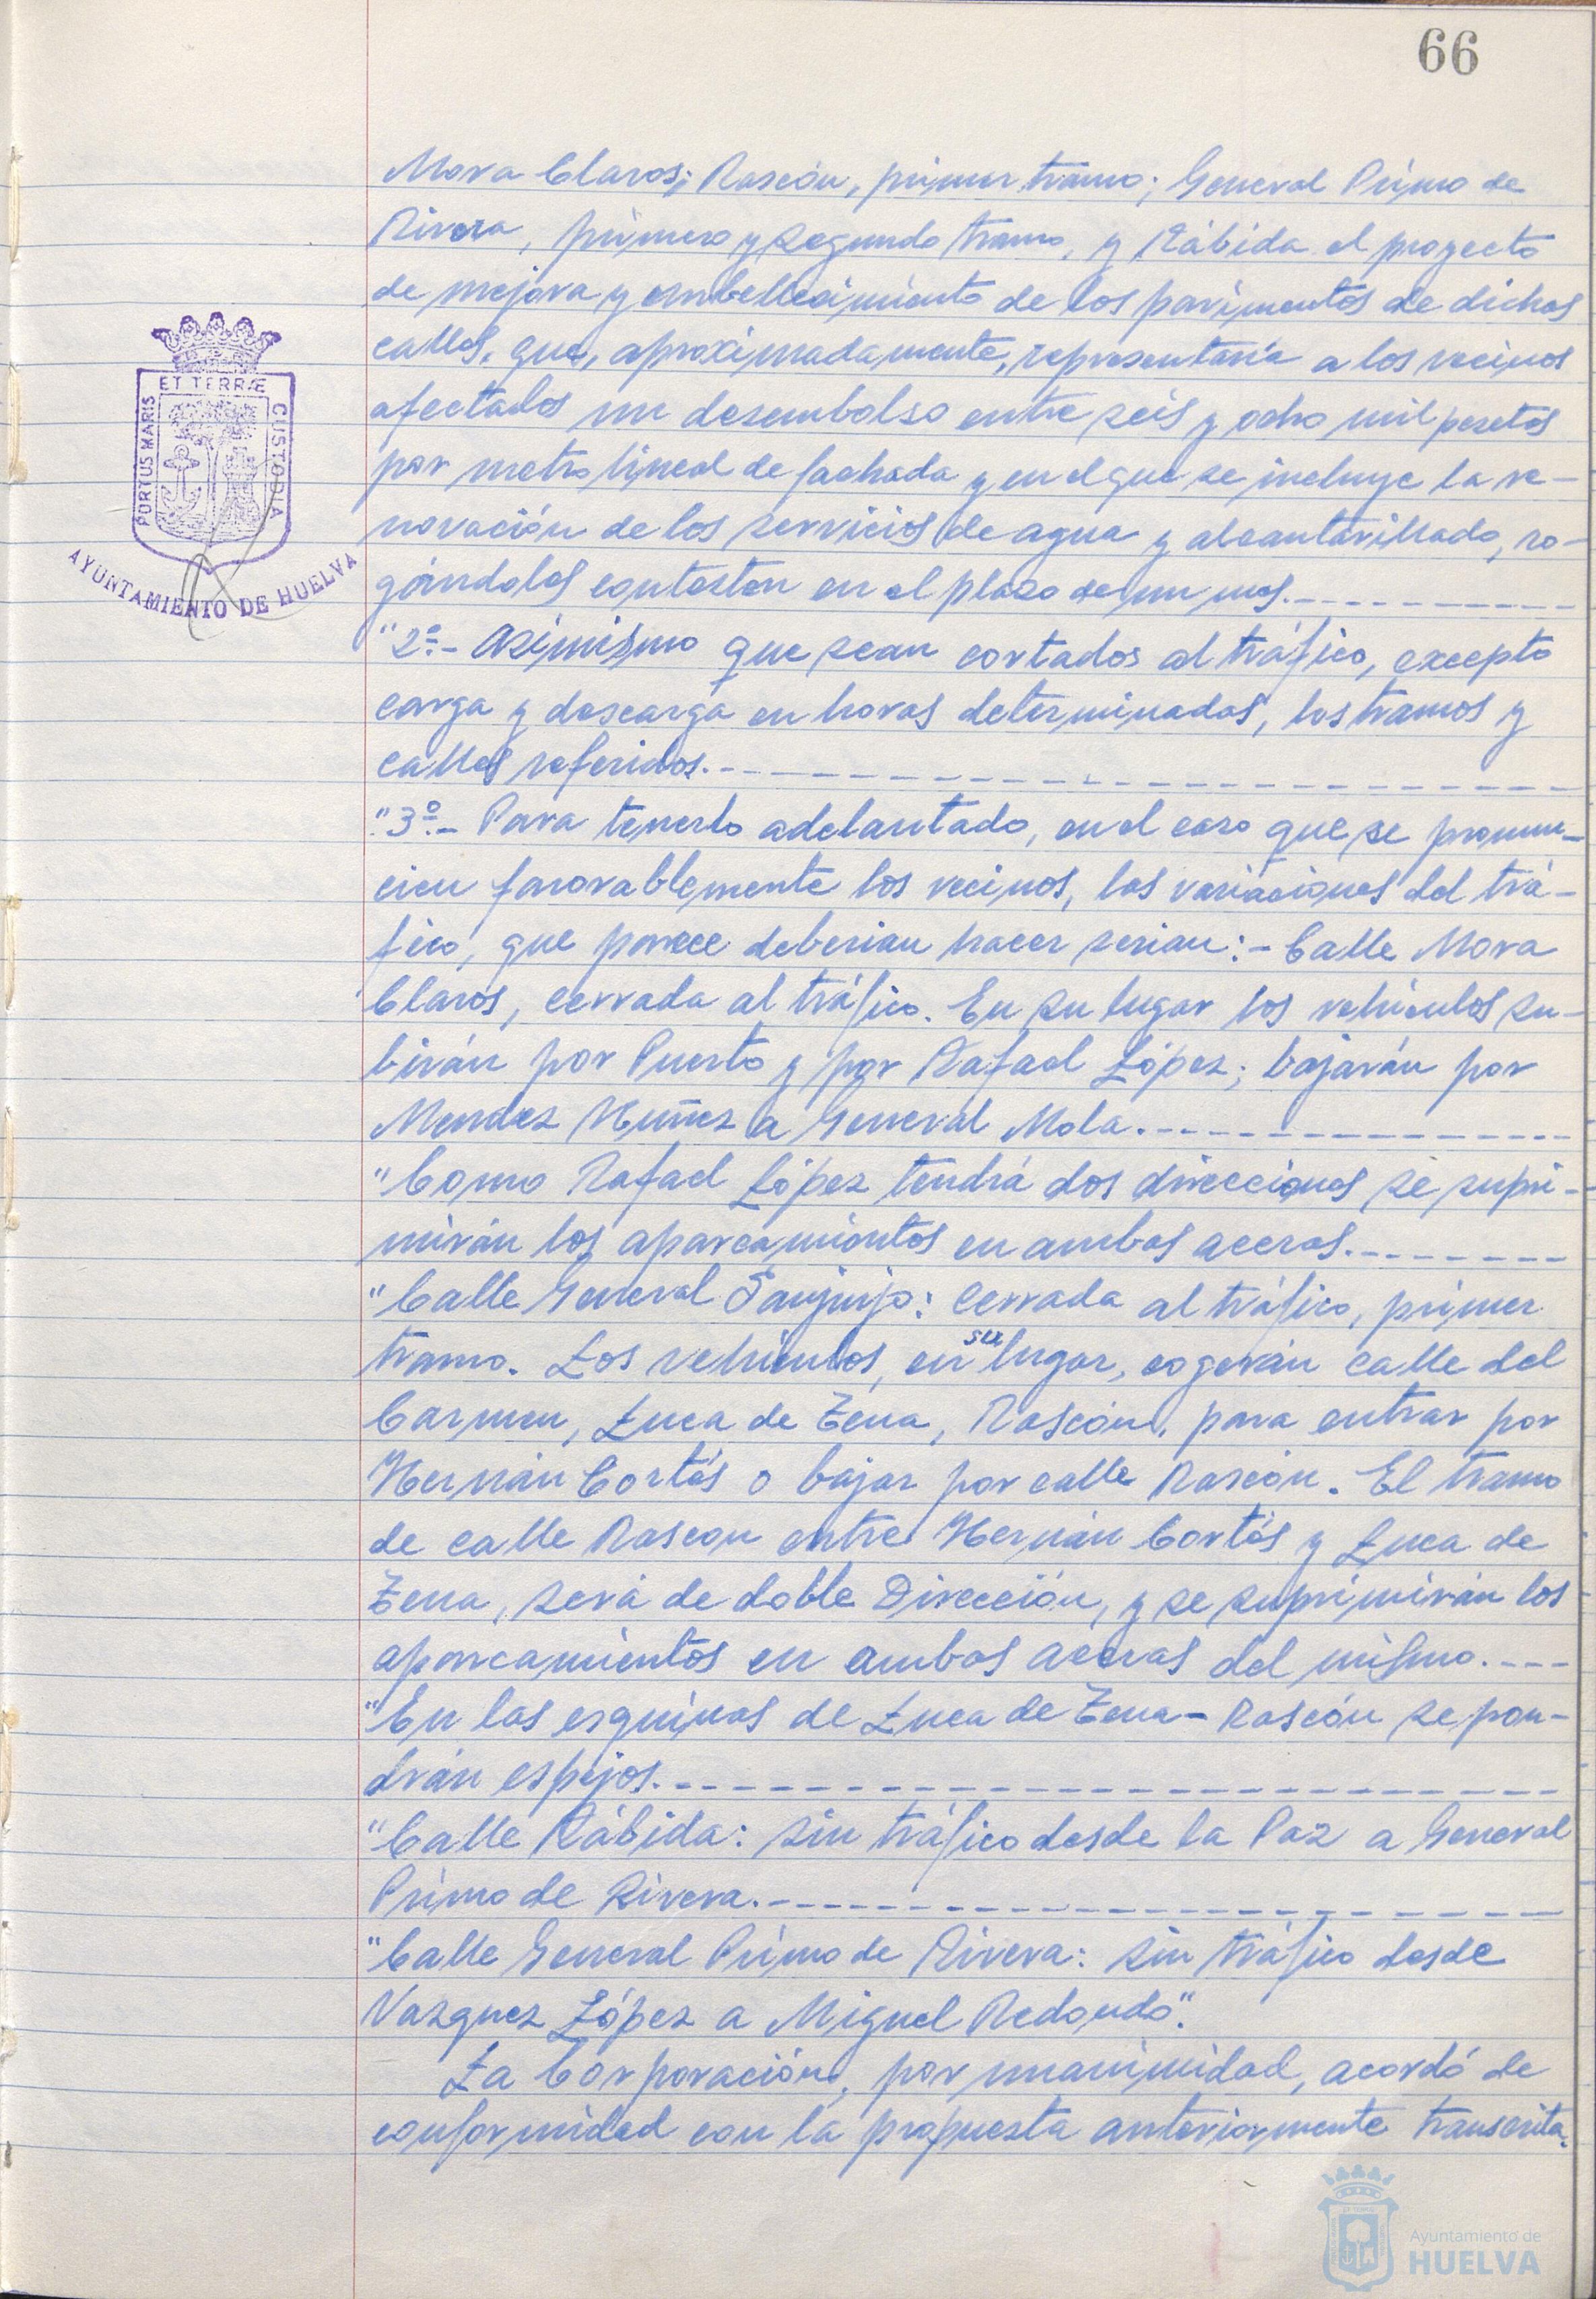 66
Mora Claros; Rascón, primer tramo; General Primo de
Rivera, primero y segundo tramo, y Rábida el proyecto
de mejora y embellecimiento de los pavimentos de dichas
calles, que, aproximadamente, representaría a los vecinos
afectados un desembolso entre seis y ocho mil pesetas
por metro lineal de fachada y en el que se incluye la re-
novación de los servicios de agua y alcantarillado, ro-
gándoles contesten en el plazo de un mes.
"2º.- Asimismo que sean cortados al tráfico, excepto
carga y descarga en horas determinadas, los tramos y
calles referidos.
"3º.- Para tenerlo adelantado, en el caso que se pronun-
cien favorablemente los vecinos, las variaciones del trá-
fico, que parece deberian hacer serian:- Calle Mora
Claros, cerrada al tráfico. En su lugar los vehículos su-
birán por Puerto y por Rafael López; bajarán por
Mendez Nuñez a General Mola.
"Como Rafael López tendrá dos direcciones se supri-
mirán los aparcamientos en ambas aceras.
"Calle General Sanjurjo: Cerrada al tráfico, primer
tramo. Los vehículos, en su lugar, cogerán calle del
Carmen, Luca de Tena, Rascón, para entrar por
Hernán Cortés o bajar por calle Rascón. El tramo
de calle Rascon entre Hernán Cortés y Luca de
Tena, será de doble Dirección, y se suprimirán los
aparcamientos en ambas aceras del mismo.
"En las esquinas de Luca de Tena-Rascón se pon-
drán espejos.
"Calle Rábida: sin tráfico desde la Paz a General
Primo de Rivera.
"Calle General Primo de Rivera: sin tráfico desde
Vazquez López a Miguel Redondo".
La Corporación, por unanimidad, acordó de
conformidad con la propuesta anteriormente transcrita.
PORTUS MARIS ET TERRÆ CUSTODIA
AYUNTAMIENTO DE HUELVA
Ayuntamiento de
HUELVA